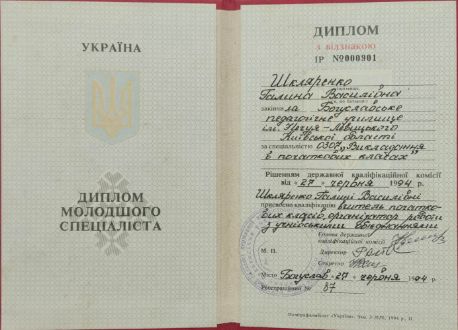 УКРАЇНА
ДИПЛОМ
МОЛОДШОГО
СПЕЦІАЛІСТА
ДИПЛОМ
З ВІДЗНАКОЮ
ІР №000901
Шкляренко
Галина Василівна
закінчила Богуславське
педагогічне училище
ім. І.Нечуя-Левицького
Київської області
за спеціальністю 0307 „Викладання
в початкових класах”
Рішенням державної кваліфікаційної комісії
від «27» червня 1994 р.
Шкляренко Галині Василівні
присвоєна кваліфікація вчитель початко-
вих класів, організатор роботи
з учнівськими об'єднаннями
Голова державної
кваліфікаційної комісії
М. П.
Директор
Секретар
Місто Богуслав «27» червня 1994
Реєстраційний № 87